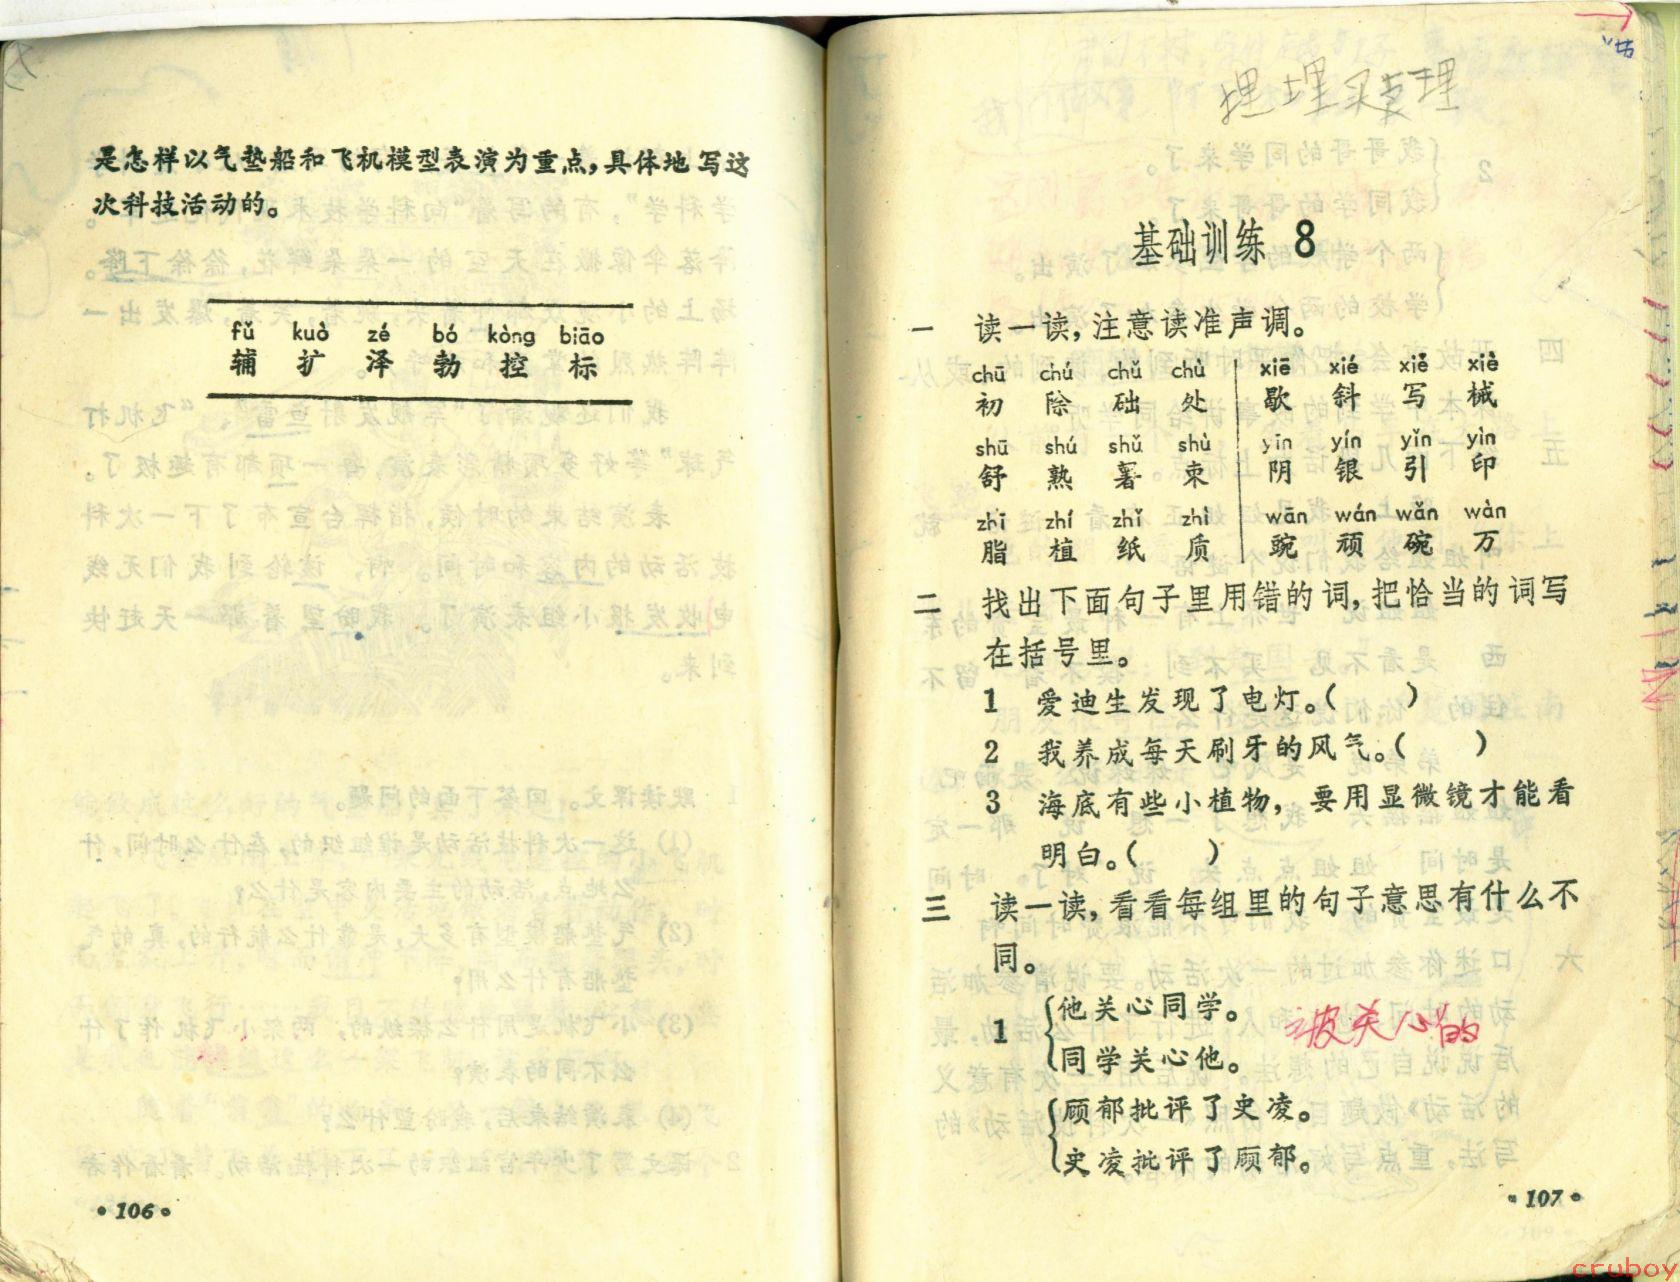 是怎样以气垫船和飞机模型表演为重点，具体地写这
次科技活动的。
fǔ kuò zé bó kòng biāo
辅 扩 泽 勃 控 标
·106·
基础训练 8
一 读一读，注意读准声调。
chū chú chǔ chù xiē xié xiě xiè
初 除 础 处 歇 斜 写 械
shū shú shǔ shù yīn yín yǐn yìn
舒 熟 署 束 阴 银 引 印
zhī zhí zhǐ zhì wān wán wǎn wàn
脂 植 纸 质 豌 顽 碗 万
二 找出下面句子里用错的词，把恰当的词写
在括号里。
1 爱迪生发现了电灯。( )
2 我养成每天刷牙的风气。( )
3 海底有些小植物，要用显微镜才能看
明白。( )
三 读一读，看看每组里的句子意思有什么不
同。
他关心同学。
1
被关心的
同学关心他。
顾郁批评了史凌。
史凌批评了顾郁。
·107·
cruboy